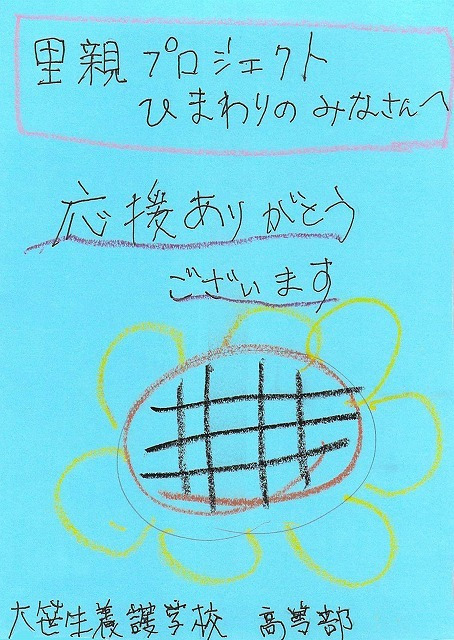 里親プロジェクト
ひまわりの みなさんへ
応援ありがとう
ございます
大笹生養護学校 高等部